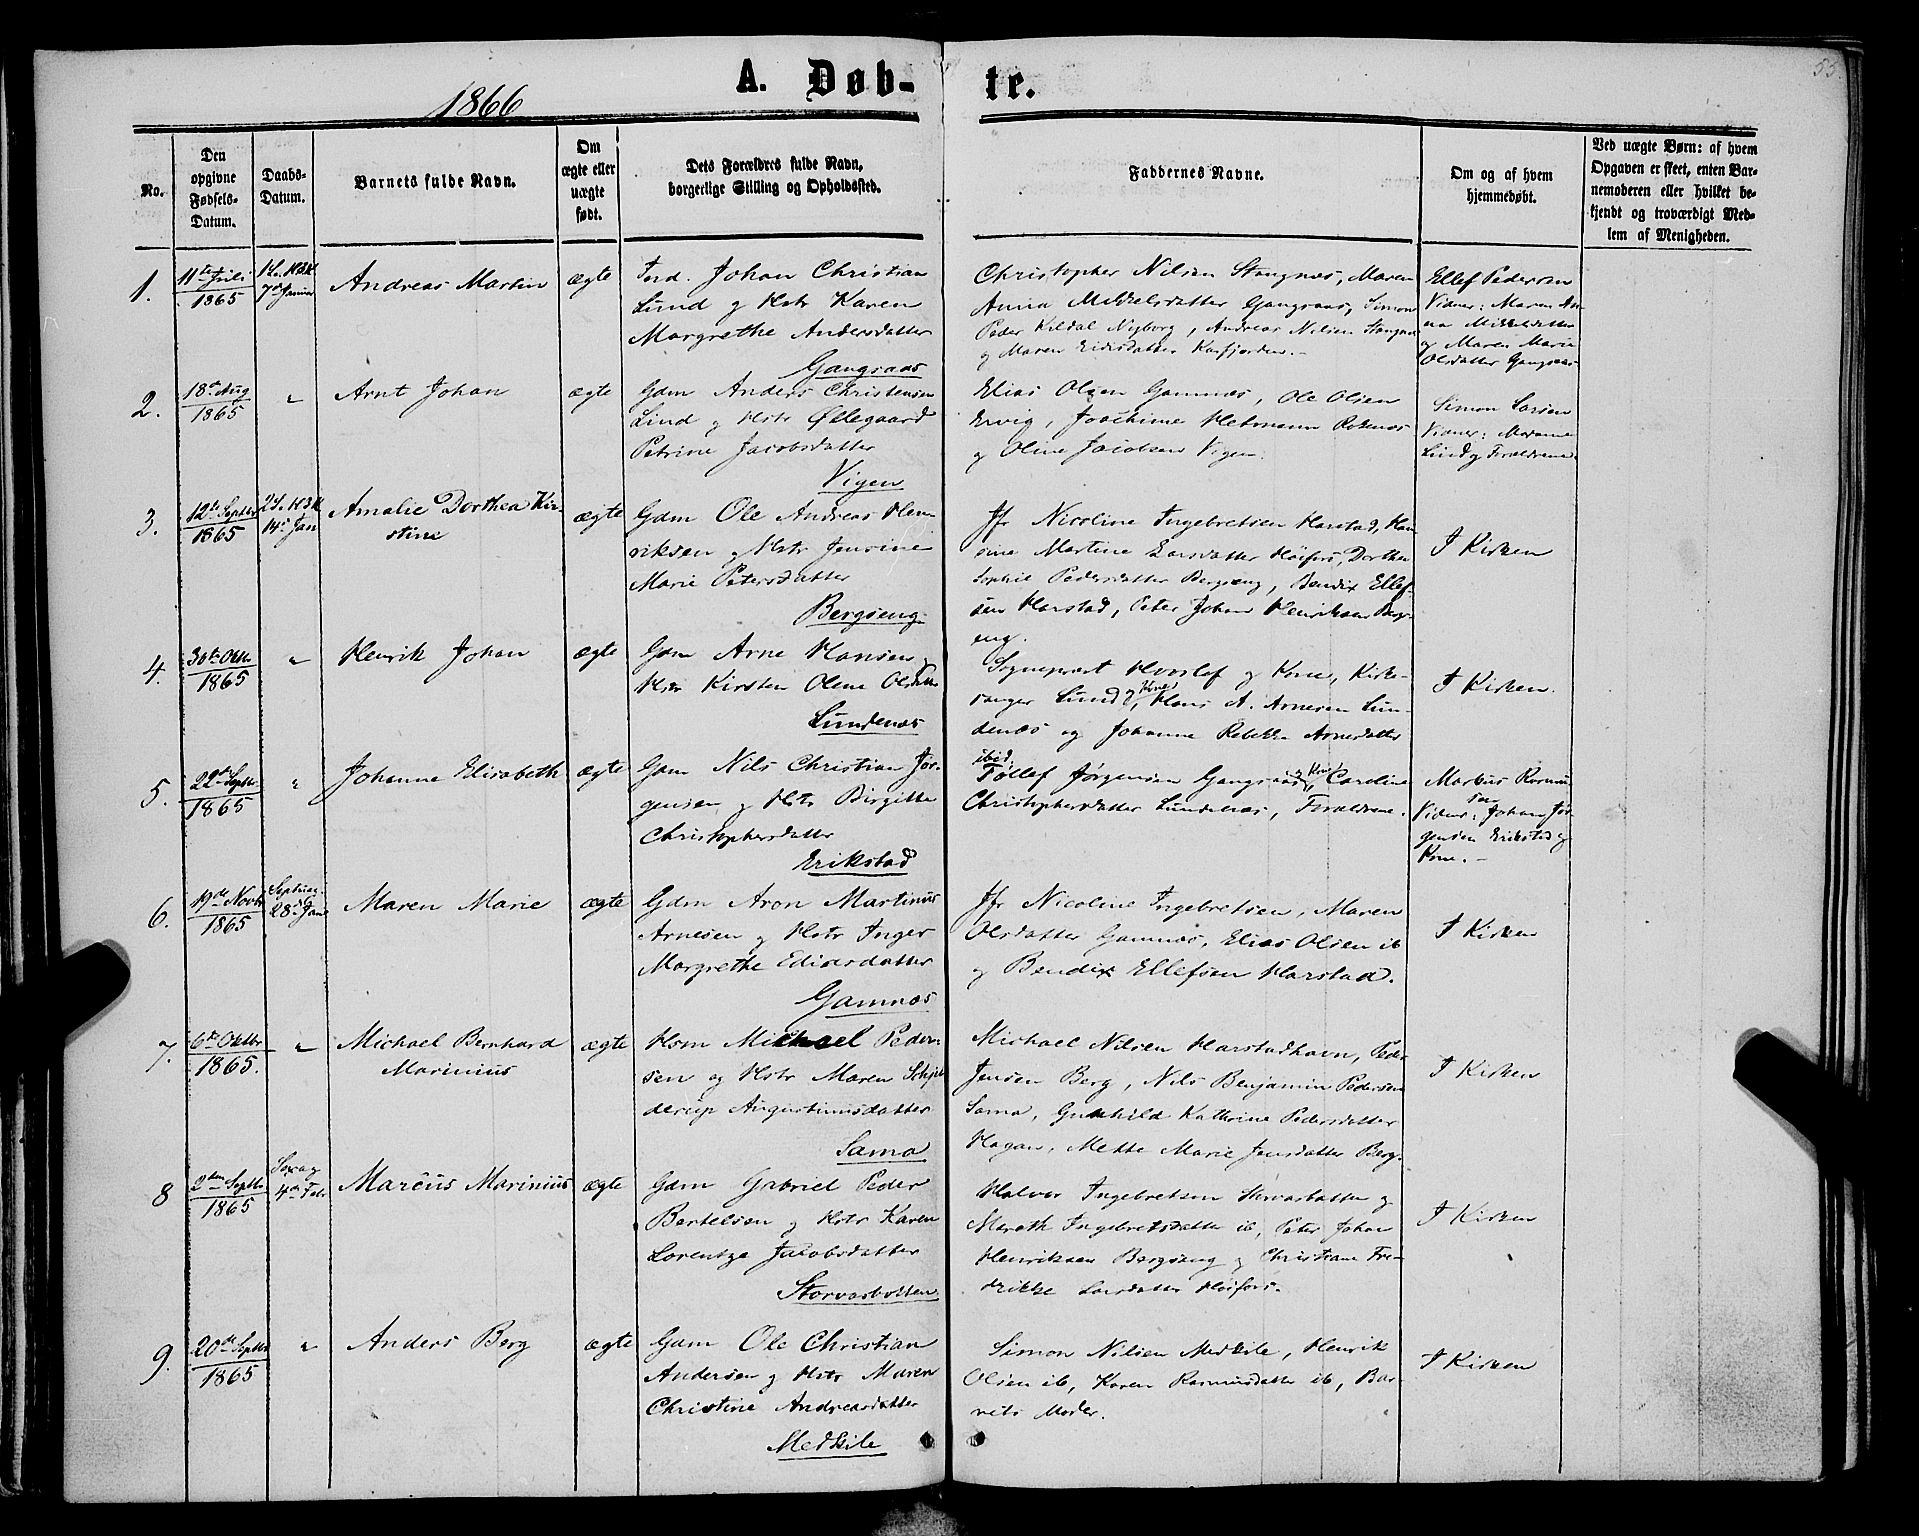 55.
1866
A. Døb-
te.
No.
Den
opgivne
Fødsels-
Datum.
Daabs-
Datum.
Barnets fulde Navn.
Om
ægte eller
uægte
født.
Dets Forældres fulde Navn,
borgerlige Stilling og Opholdssted.
Faddernes Navne.
Om og af hvem
hjemmedøbt.
Ved uægte Børn: af hvem
Opgaven er skeet, enten Bar-
nemoderen eller hvilket be-
kjendt og troværdigt Med-
lem af Menigheden.
1.
11te Juli
1865
7de Januar
Andreas Martin
ægte
Johan Christian
Lund og Hstr Karen
Margrethe Andersdatter
Gangsaas
Christopher Nilsen Stangnæs, Maren
Anna Mikkelsdatter Gangsaas, Simon
Peder Kildal Nyborg, Andreas Nilsen Stangnæs
og Maren Kasfjorden.
Ellef Pedersen
Vidner: Maren An-
na Mikkelsdatter
og Maren Marie
Olsdatter Gangsaas
2.
18de Aug
1865
"
Arnt Johan
ægte
Gdm Anders Christensen
Lind og Hstr Øllegaard
Petrine Jacobsdatter
Vigen
Elias Olsen Gamnæs, Ole Olsen
Ervig, Joachime Rokenæs
og Oline Jacobsen Vigen.
Simon Larsen
Vidner:
Lind og Forældrene.
3.
12te Septbr
1865
14de Jan
Amalie Dorthea Kir-
stine
ægte
Gdm Ole Andreas Hen-
riksen og Hstr Jensine
Marie Petersdatter
Bergseng
Jfr Nicoline Ingebretsen Harstad, Han-
sine Martine Larsdatter Høifors, Dorthea
Sophie Pedersdatter Bergseng, Bendix Ellef-
sen Harstad, Peter Johan Henriksen Bergs-
eng.
I Kirken
4.
30te Oktbr
1865
"
Henrik Johan
ægte
Gdm Arne Hansen
Hstr Kirsten Olene Olsdatter
Lundenæs
Sognepræst Hvoslef og Kone, Kirke-
sanger Lund og Kone, Hans A. Arnesen Lun-
denæs og Johanne Rebekka Arnesdatter
ibid.
I Kirken.
5.
22de Septbr.
1865
"
Johanne Elisabeth
ægte
Gdm Nils Christian Jør-
gensen og Hstr Birgitte
Christophersdatter
Erikstad
Tøllef Jørgensen Gangsaas og Kone, Caroline
Christophersdatter Lundenæs, Forældrene.
Markus Rasmus
sen
Vidner: Johan Jør-
gensen Erikstad og
Kone.
6.
19de Novbr
1865
Septuag.
28de Jan
Maren Marie
ægte
Gdm Aron Martinus
Arnesen og Hstr Inger
Margrethe Ediasdatter
Gamnæs
Jfr Nicoline Ingebretsen, Maren
Olsdatter Gamnæs, Elias Olsen ib
og Bendix Ellefsen Harstad.
I Kirken
7.
6te Oktbr
1865.
"
Michael Bernhard
Marinius
ægte
Hsm Michael Peder-
sen og Hstr Maren Schjel-
derup Augustinusdatter
Sama
Michael Nilsen Harstadhavn, Peder
Jensen Berg, Nils Benjamin Pedersen
Sama, Gunhild Kathrine Pedersdatter
Hagan, Mette Marie Jensdatter Berg.
I Kirken
8
2den Septbr
1865
Sexag
4de Febr
Marcus Marinius
ægte
Gdm Gabriel Peder
Bertelsen og Hstr Karen
Lorentze Jacobsdatter
Storvasbotten
Halvor Ingebretsen Storvasbotten og
Mereth Ingebretsdatter ib, Peter Johan
Henriksen Bergseng og Christiane Fre-
drikke Larsdatter Høifors.
I Kirken
9.
20de Septbr
1865
"
Anders Berg
ægte
Gdm Ole Christian
Andersen og Hstr Maren
Christine Andreasdatter
Medkile
Simon Nilsen Medkile, Henrik
Olsen ib, Karen Rasmusdatter ib, Bar-
nets Moder.
I Kirken